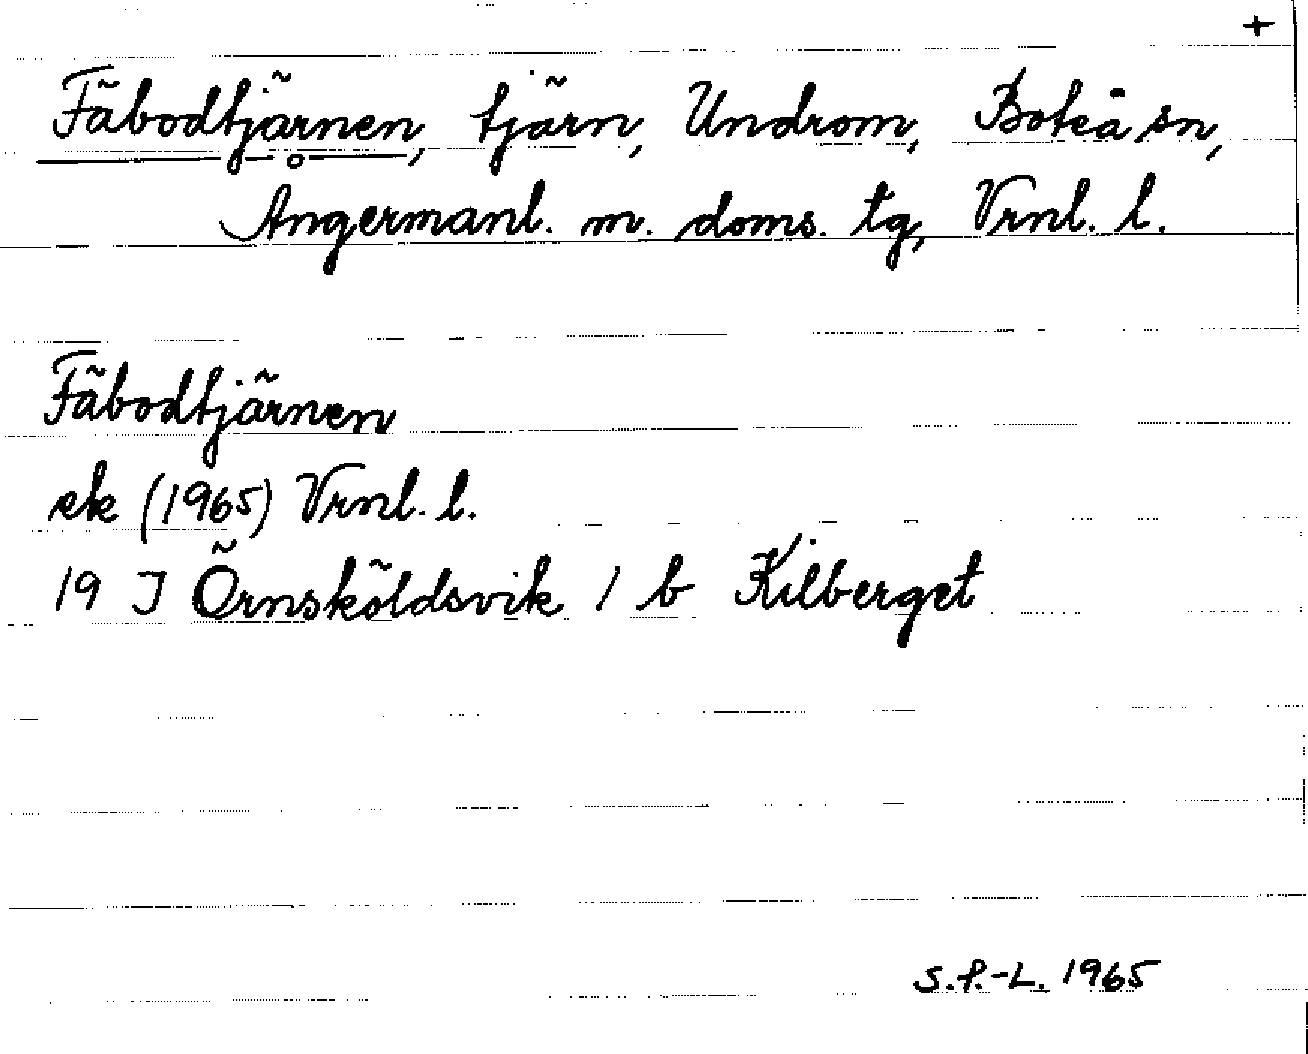 +
Fäbodtjärnen, tjärn, Undrom, Boteå sn,
Ångermanl. m. doms. tg, Vrnl. l.
Fäbodtjärnen
ek (1965) Vrnl. l.
19 J Örnsköldsvik 1 b Kilberget
S.P.-L. 1965